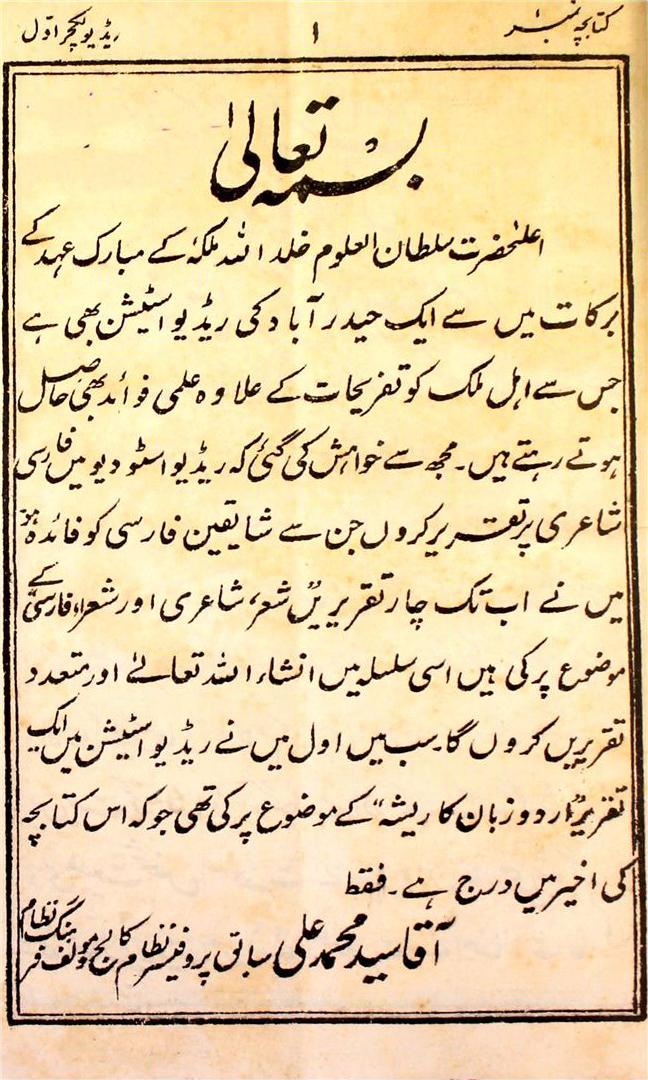 کتابچہ نمبر ۱
۱
ریڈیو لکچر اوّل
بسمہ تعالیٰ
اعلیٰحضرت سلطان العلوم خلد اللہ ملکہٗ کے مبارک عہد کے
برکات میں سے ایک حیدرآباد کی ریڈیو اسٹیشن بھی ہے
جس سے اہل ملک کو تفریحات کے علاوہ علمی فوائد بھی حاصل
ہوتے رہتے ہیں۔ مجھ سے خواہش کی گئی کہ ریڈیو اسٹودیو میں فارسی
شاعری پر تقریر کروں جن سے شایقین فارسی کو فائدہ ہو
میں نے اب تک چار تقریریں شعر، شاعری اور شعراء فارسی کے
موضوع پر کی ہیں اسی سلسلہ میں انشاء اللہ تعالےٰ اور متعدد
تقریریں کروں گا۔ سب میں اول میں نے ریڈیو اسٹیشن میں ایک
تقریر "اردو زبان کا ریشہ" کے موضوع پر کی تھی جو کہ اس کتابچہ
کی اخیر میں درج ہے۔ فقط
آقا سید محمد علی سابق پروفیسر نظام کالج و مولف فرہنگ نظام